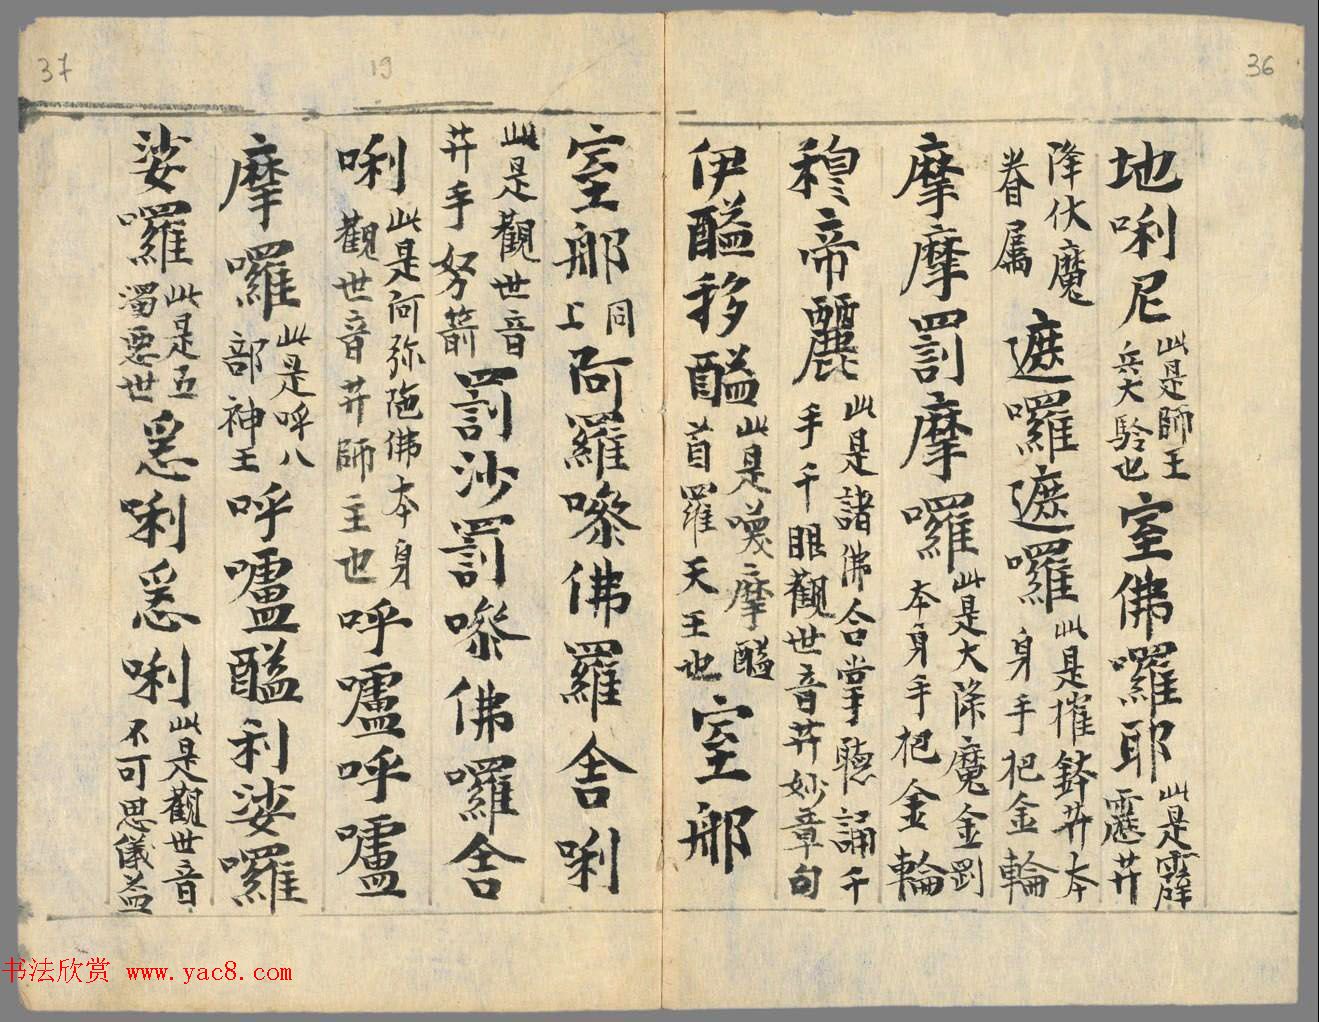 36
地唎尼此是師王兵大驗也室佛囉耶此是霹靂菩
降伏魔眷屬遮囉遮囉此是摧鋅菩本身手把金輪
摩摩罰摩囉此是大降魔金剛本身手把金輪
穆帝麗此是諸佛合掌聽誦千手千眼觀世音菩妙章句
伊醯移醯此是嘆摩醯首羅天王也室那
37
19
室那同上阿羅嘇佛羅舍唎
此是觀世音菩手努箭罰沙罰嘇佛囉舍
唎此是阿弥陁佛本身觀世音菩師主也呼嚧呼嚧
摩囉此是呼八部神王呼嚧醯利娑囉
娑囉此是五濁惡世悉唎悉唎此是觀世音不可思儀益
书法欣赏 www.yac8.com